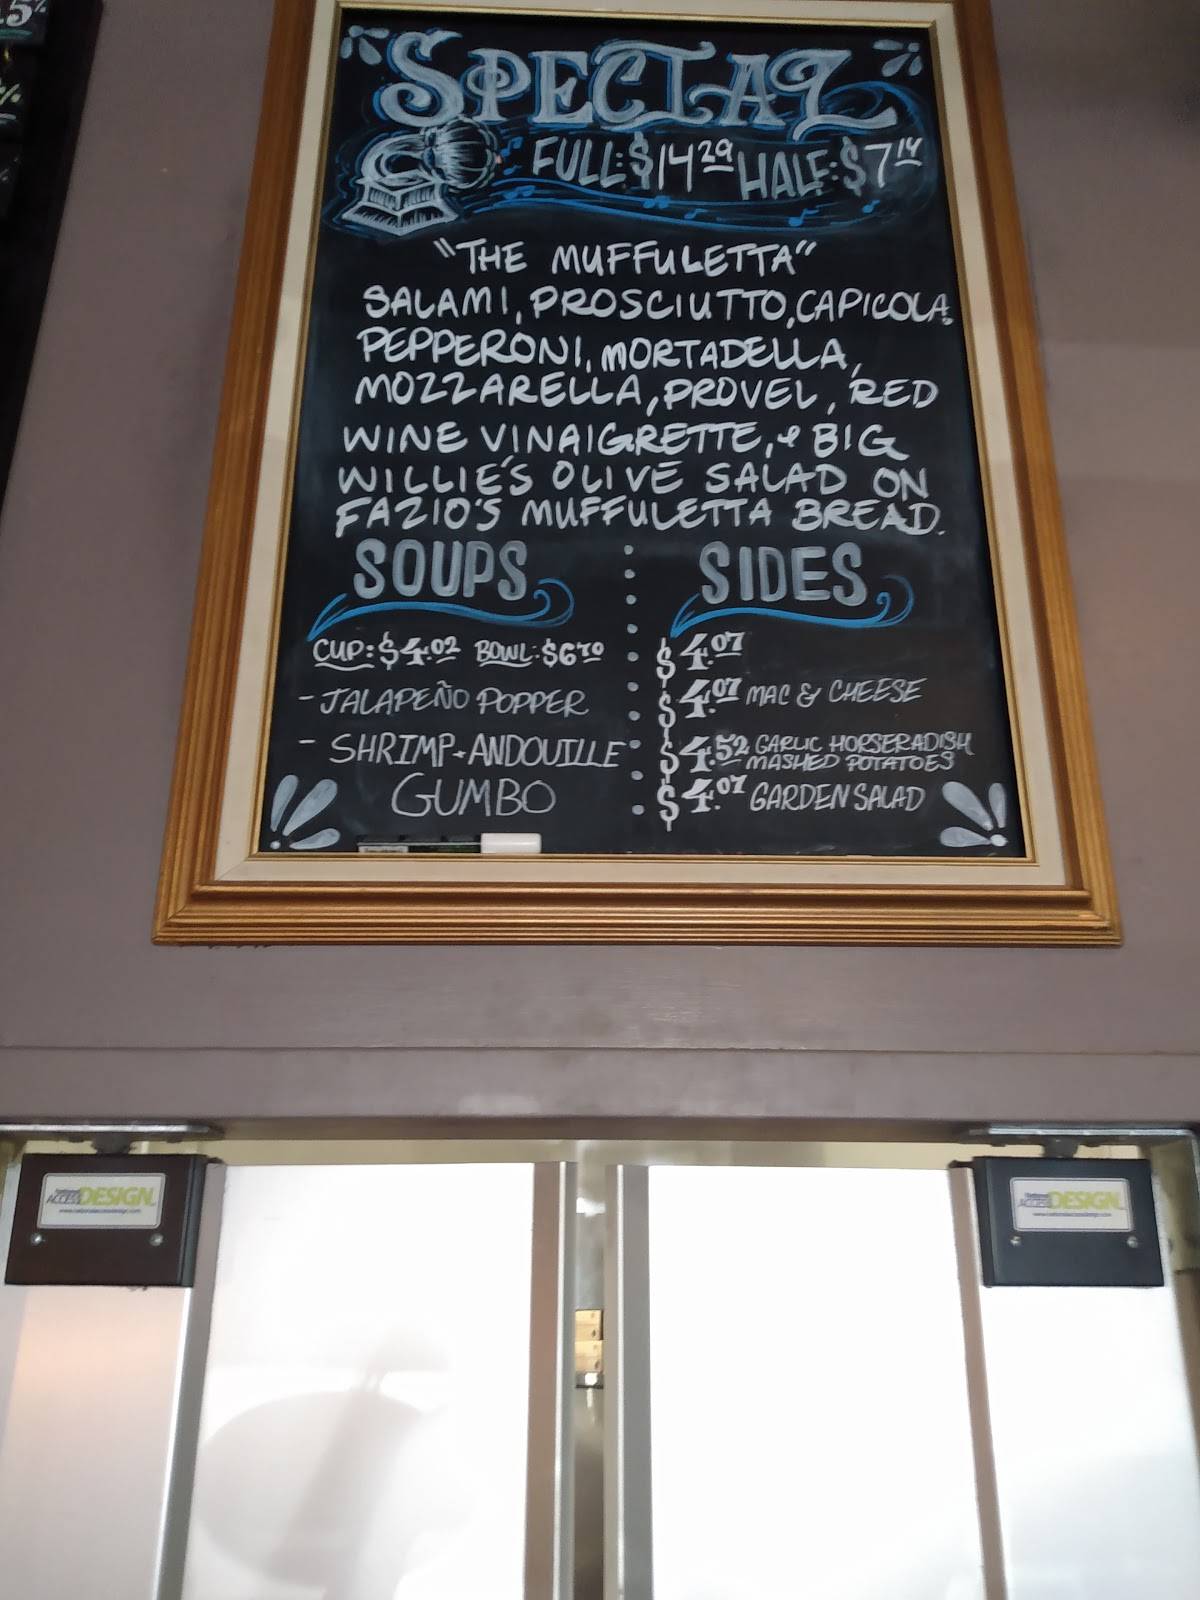 SPECIAL
FULL: $14.29 HALF: $7.14
"THE MUFFULETTA"
SALAMI, PROSCIUTTO, CAPICOLA,
PEPPERONI, MORTADELLA,
MOZZARELLA, PROVEL, RED
WINE VINAIGRETTE, & BIG
WILLIE'S OLIVE SALAD ON
FAZIO'S MUFFULETTA BREAD.
SOUPS
CUP: $4.02 BOWL: $6.70
- JALAPEÑO POPPER
- SHRIMP + ANDOUILLE
GUMBO
SIDES
$4.07
$4.07 MAC & CHEESE
$4.52 GARLIC HORSERADISH
MASHED POTATOES
$4.07 GARDEN SALAD
National
ACCESS DESIGN
www.nationalaccessdesign.com
National
ACCESS DESIGN
www.nationalaccessdesign.com